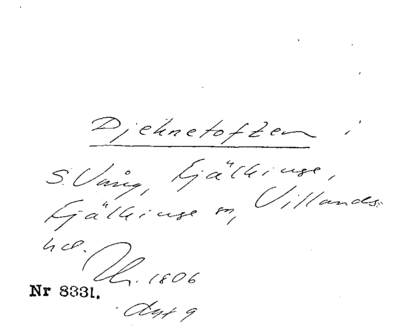 Djeknetoften i
S. Vång, Fjälkinge,
Fjälkinge sn, Villands
hd.
Uh. 1806
Nr 8331.
Akt 9